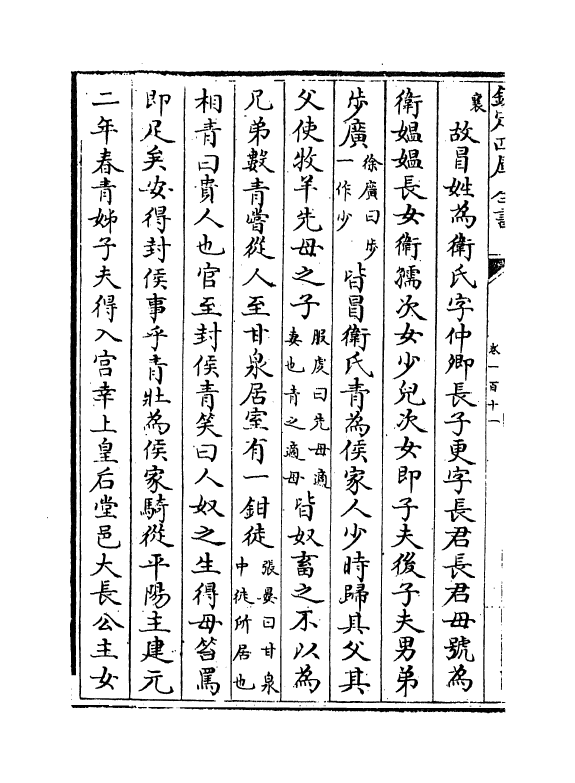 欽定四庫全書
卷一百十一
襄
故冒姓為衛氏字仲卿長子更字長君長君母號為
衛媼媼長女衛孺次女少兒次女即子夫後子夫男弟
步廣徐廣曰步一作少皆冒衛氏青為侯家人少時歸其父其
父使牧羊先母之子服虔曰先母適妻也青之適母皆奴畜之不以為
兄弟數青嘗從人至甘泉居室有一鉗徒張晏曰甘泉中徒所居也
相青曰貴人也官至封侯青笑曰人奴之生得母笞罵
即足矣安得封侯事乎青壯為侯家騎從平陽主建元
二年春青姊子夫得入宮幸上皇后堂邑大長公主女